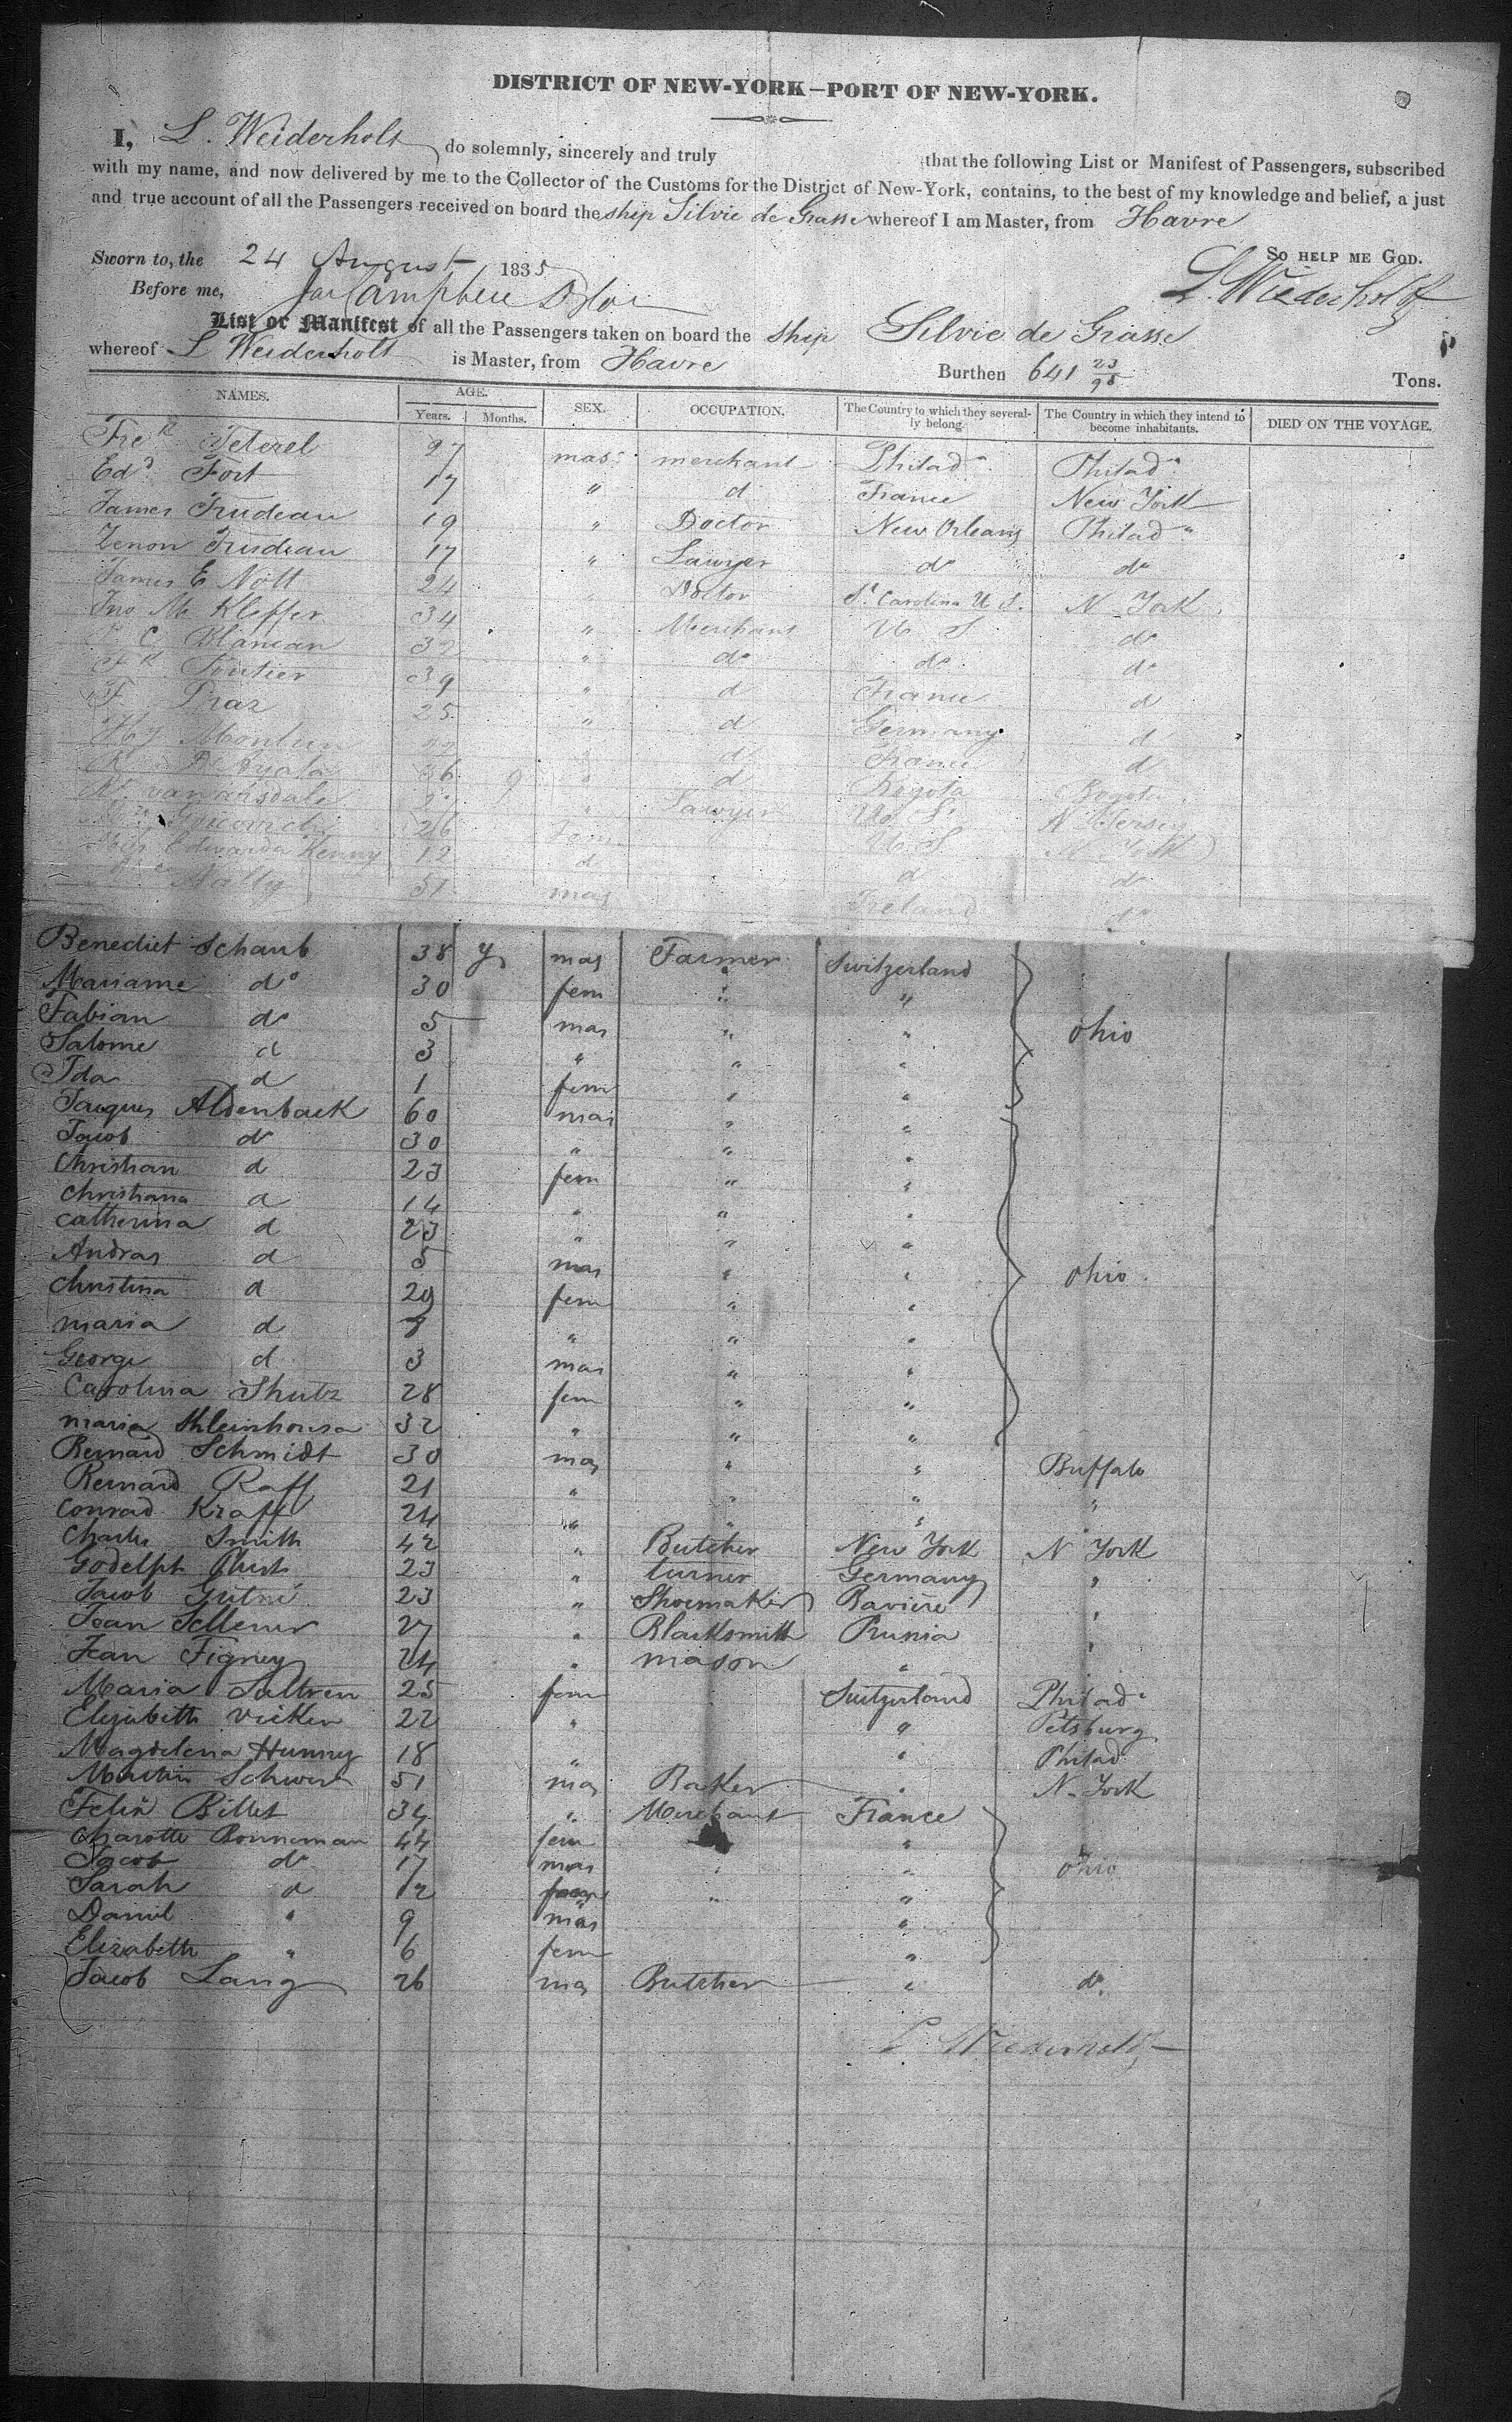 DISTRICT OF NEW-YORK—PORT OF NEW-YORK.
I, L. Weiderholt do solemnly, sincerely and truly that the following List or Manifest of Passengers, subscribed
with my name, and now delivered by me to the Collector of the Customs for the District of New-York, contains, to the best of my knowledge and belief, a just
and true account of all the Passengers received on board the ship Silvie de Grasse whereof I am Master, from Havre
So help me God.
Sworn to, the 24 August 1835
Before me,
L. Wiederholdt
List or Manifest of all the Passengers taken on board the ship Silvie de Grasse
whereof L Weiderholt is Master, from Havre Burthen 641 23/95 Tons.
NAMES. AGE. Years. Months. SEX. OCCUPATION. The Country to which they severally belong. The Country in which they intend to become inhabitants. DIED ON THE VOYAGE.
Fre^k 27 mas merchant Philad^a Philad^a
Ed^d Fort 17 " d France New York
James Trudeau 19 " Doctor New Orleans Philad^a
Zenon Trudeau 17 " Lawyer d^o d^o
James E Nott 24 " Doctor S^o Carolina U S. N York
Jno M Kleffer 34 " Merchant U S d^o
C Blancan 32 " d^o d^o d^o
F^k Poutier 39 " d France d
F Praz 25 " d Germany d
Hy d France d
36 9 " d Bogota Bogota
vanarsdale " Lawyer U S N Jersey
26 fem U S N York
Edwarda Kenny 12 d d d^o
Nally 51 mas Ireland d^o
Benedict Schaub 38 y mas Farmer Switzerland
Mariame d^o 30 fem " "
Fabian d^o 5 mas " " Ohio
Salome d 3 " " "
Ida d 1 fem " "
Jacques Aldenback 60 mas " "
Jacob d^o 30 " " "
Christian d 23 fem " "
Christiana d 14 " " "
Catherina d 23 " " "
Andras d 5 mas " " Ohio
Christina d 29 fem " "
Maria d 7 " " "
George d 3 mas " "
Carolina Shutz 28 fem " "
Maria 32 " " "
Bernard Schmidt 30 mas " " Buffalo
Bernard Raff 21 " " " "
Conrad Kraff 24 " " "
Charles Smith 42 " Butcher New York N York
Godelph 23 " turner Germany "
Jacob 23 " Shoemaker Baviere "
Jean Sellener 27 " Blacksmith Prussia "
Jean Figney 24 " mason "
Maria Sultren 25 fem Switzerland Philad^a
Elizabeth Vicker 22 " " Petsburg
Magdelena Hunney 18 " " Philad
Martin Schwest 51 mas Baker " N York
Felix Billet 34 " Merchant France
Charotte Bonneman 44 fem "
Jacob d^o 17 mas " " Ohio
Sarah d 12 " "
Daniel " 9 mas "
Elizabeth " 6 fem "
Jacob Lang 26 mas Butcher " d^o
L Wiederholdt